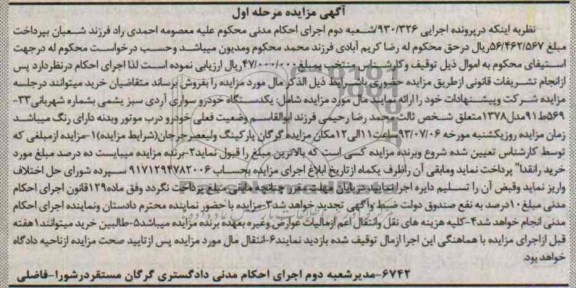 آگهی مزایده مرحله اول
نظریه اینکه درپرونده اجرایی ۹۳۰/۳۲۶/شعبه دوم اجرای احکام مدنی محکوم علیه معصومه احمدی راد فرزند شعبان بپرداخت
مبلغ ۵۶/۴۶۲/۵۶۷ریال درحق محکوم له رضا کریم آبادی فرزند محمد محکوم ومدیون میباشد وحسب درخواست محکوم له درجهت
استیفای محکوم به اموال ذیل توقیف وکارشناس منتخب بمبلغ ۴۷/۰۰۰/۰۰۰ریال ارزیابی نموده است لذا اجرای احکام درنظردارد پس
ازانجام تشریفات قانونی ازطریق مزایده حضوری شرایط ذیل الذکر مال مورد مزایده را بفروش برساند متقاضیان خرید میتوانند درجلسه
مزایده شرکت وپیشنهادات خود را ارائه نمایند مال مورد مزایده شامل: یکدستگاه خودرو سواری آردی سبز یشمی بشماره شهربانی۳۳-
۵۶۹ط۹۱مدل۱۳۷۸متعلق شخص ثالث محمد رضا رحیمی فرزند ابوالقاسم وضعیت فعلی خودرو درب موتور وبدنه دارای رنگ میباشد
زمان مزایده روزیکشنبه مورخه ۹۳/۰۷/۰۶ساعت۱۱الی۱۲مکان مزایده گرگان پارکینگ ولیعصرجرجان(شرایط مزایده)۱-مزایده ازمبلغی که
توسط کارشناس تعیین شده شروع وبرنده مزایده کسی است که بالاترین مبلغ را قبول نماید۲-برنده مزایده میبایست ده درصد مبلغ مورد
خرید رانقدا" پرداخت نماید ومابقی آن راظرف یکماه ازتاریخ ابلاغ اجرای مزایده بحساب ۹۱۷۱۲۹۴۷۸۲۰۰۶ سپرده شورای حل اختلاف
واریز نماید وقبض آن را تسلیم دایره اجرا نمایند درپایان مهلت مقرر چنانچه مابقی مبلغ پرداخت نگردد وفق ماده۱۲۹قانون اجرای احکام
مدنی مبلغ۱۰درصد به نفع صندوق دولت ضبط وآگهی تجدید خواهد شد۳-مزایده با حضور نماینده محترم دادستان ونماینده اجرای احکام
مدنی انجام خواهد شد۴-کلیه هزینه های نقل وانتقال اعم ازمالیات عوارض وغیره بعهده برنده مزایده میباشد۵-طالبین خرید میتوانند۱هفته
قبل ازاجرای مزایده با هماهنگی این اجرا ازمال توقیف شده بازدید نمایند۶-انتقال مال مورد مزایده پس ازتایید صحت مزایده ازناحیه دادگاه
خواهد بود.
۶۷۴۲-مدیرشعبه دوم اجرای احکام مدنی دادگستری گرگان مستقردرشورا-فاضلی